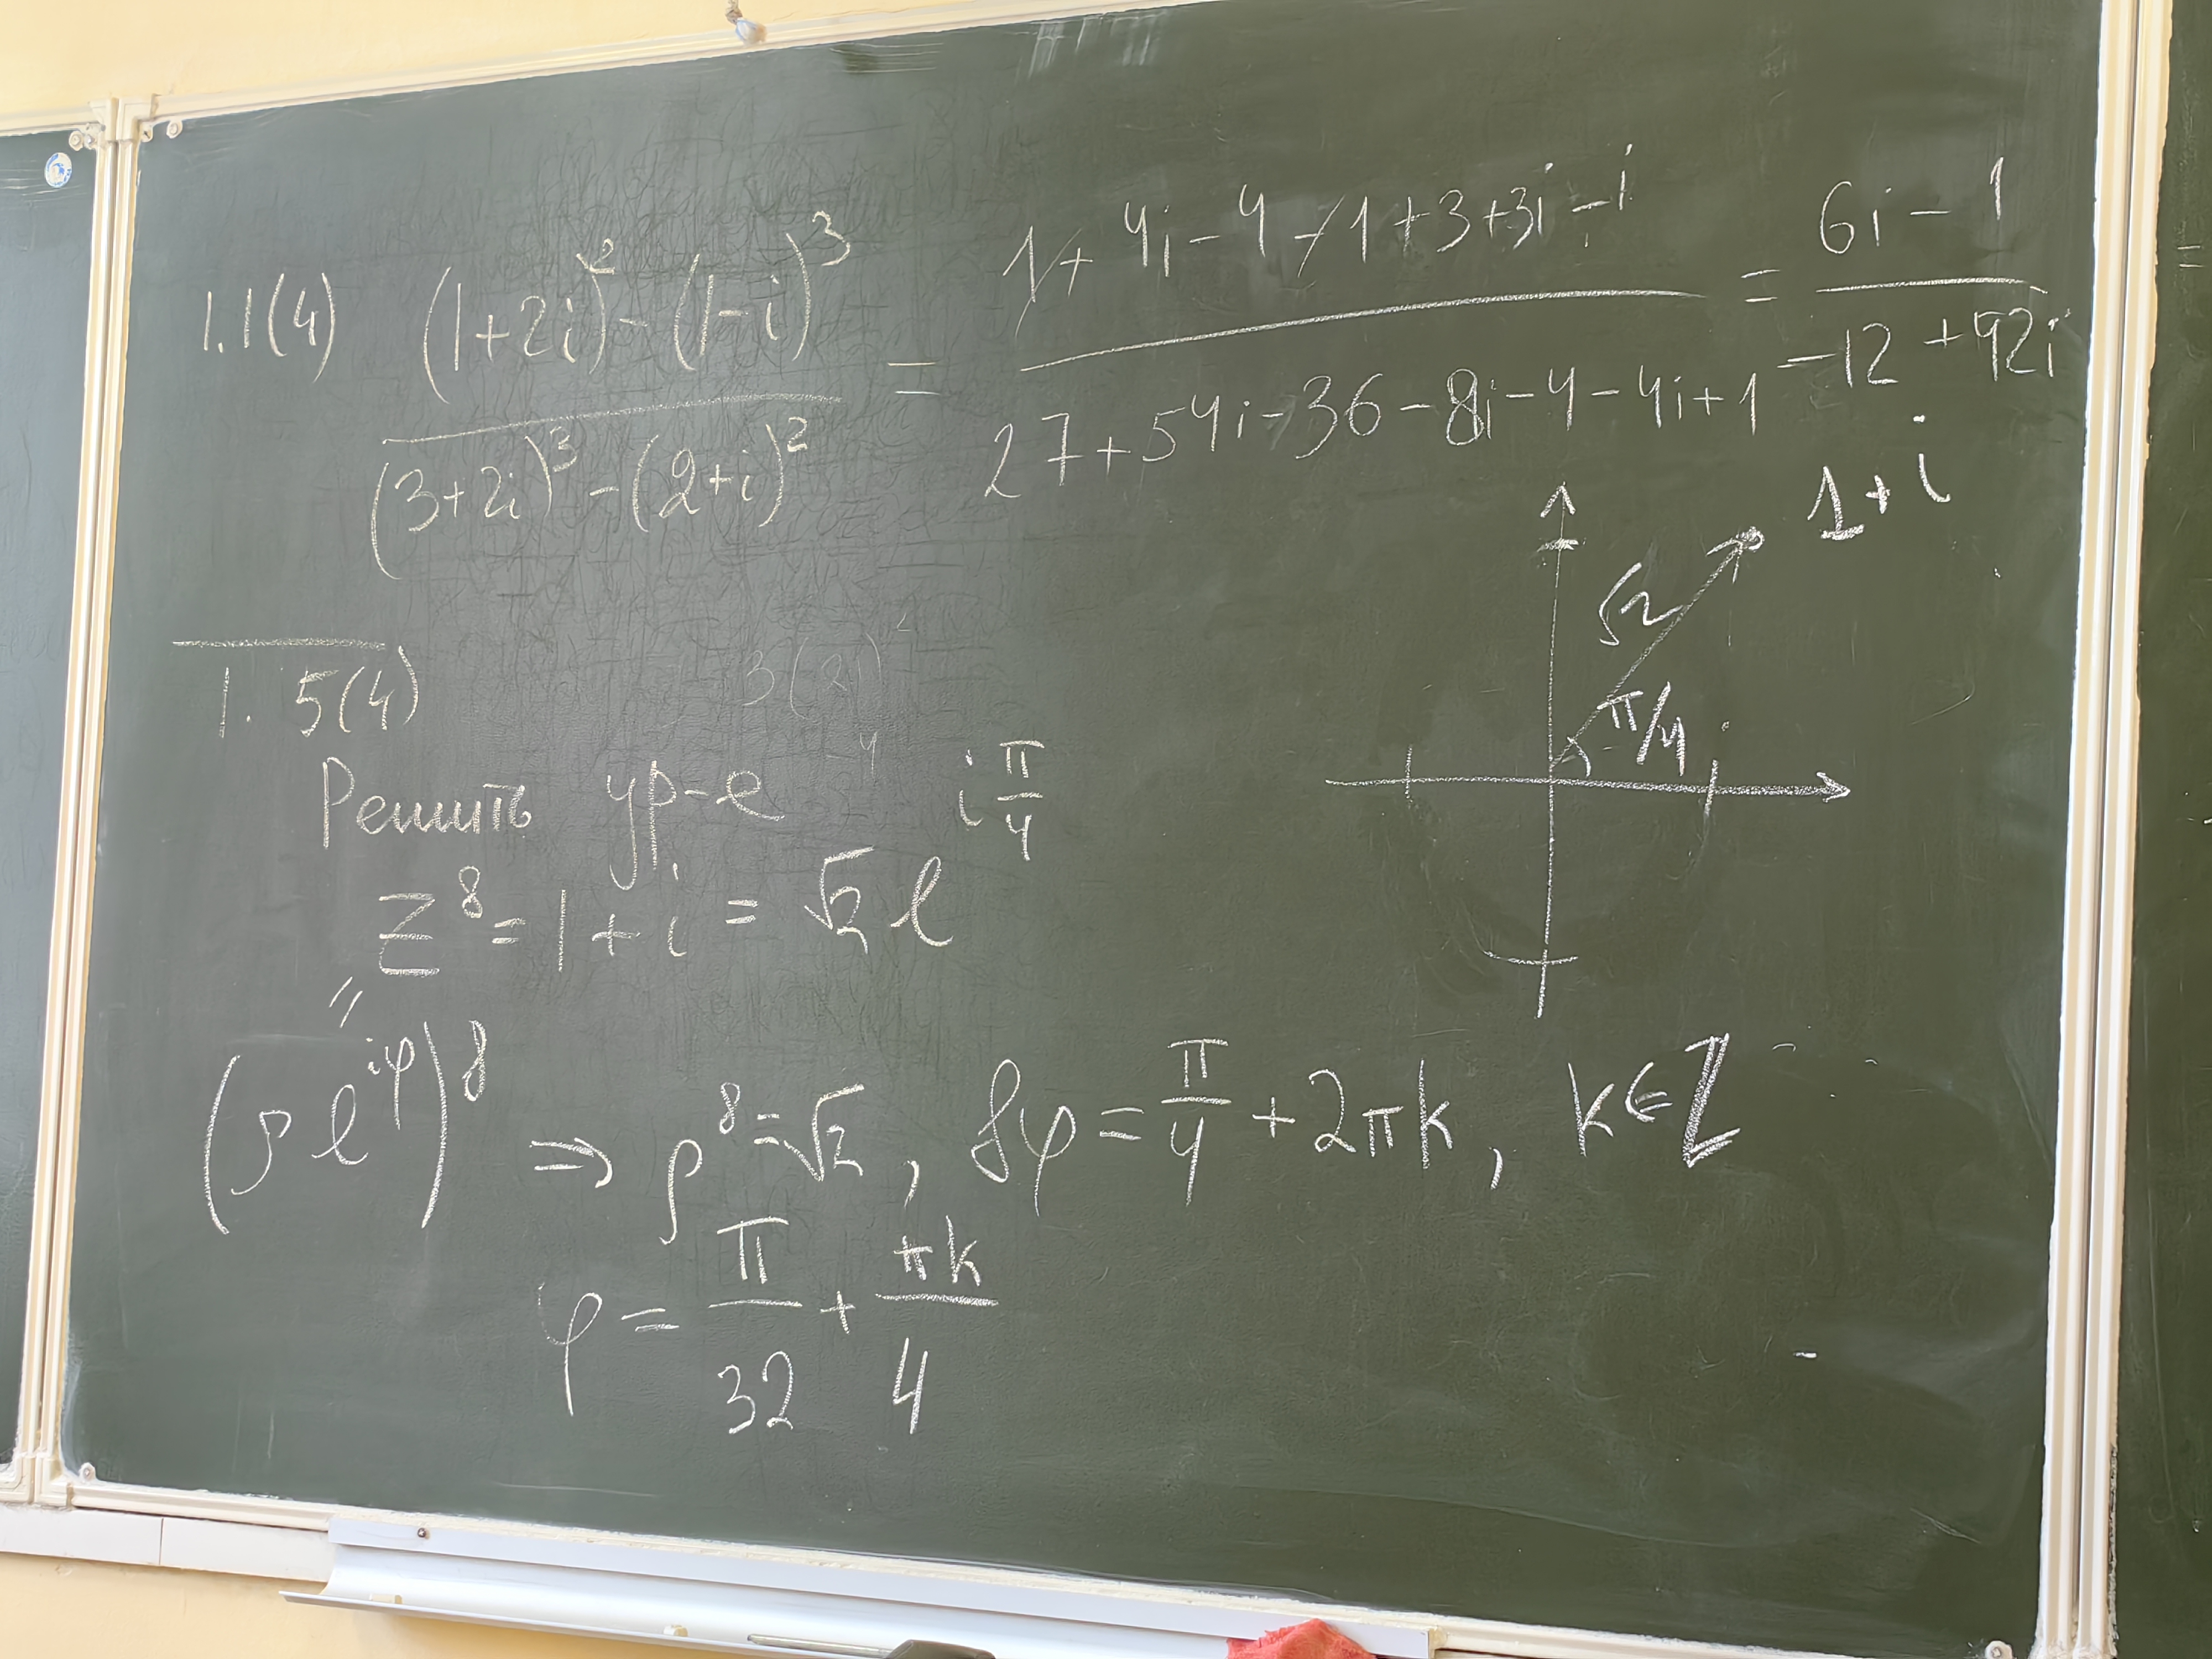 1.1(4) ((1+2i)^2 - (1-i)^3) / ((3+2i)^3 - (2+i)^2) = (1+4i-4-1+3+3i-i) / (27+54i-36-8i-4-4i+1) = (6i-1) / (-12+42i)
1+i
√2
π/4
1.5(4)
Решить ур-е
z^8 = 1+i = √2 e^{i π/4}
=
(ρ e^{iφ})^8 ⇒ ρ^8 = √2, 8φ = π/4 + 2πk, k∈ℤ
φ = π/32 + πk/4